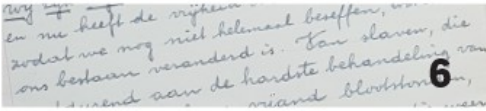 wij
en nu heeft de vrijheid
zodat we nog niet helemaal beseffen,
ons bestaan veranderd is. Van slaven, die
aan de hardste behandeling van
vijand blootstonden,
6